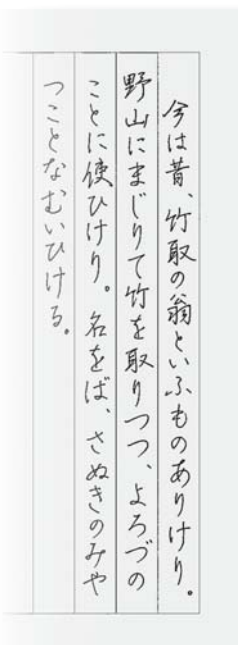 今は昔、竹取の翁といふものありけり。
野山にまじりて竹を取りつつ、よろづの
ことに使ひけり。名をば、さぬきのみや
つことなむいひける。